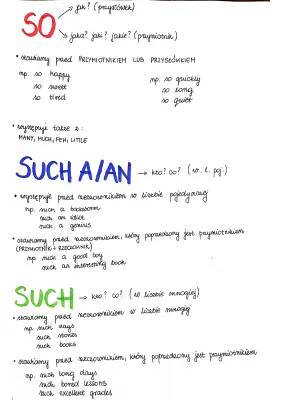 jak? (przysłówek)
SO
jaka? jaki? jakie? (przymiotnik)
• stawiamy przed PRZYMIOTNIKIEM LUB PRZYSŁÓWKIEM
np. so happy
so sweet
so tired
np. so quickly
so long
so quiet
• występuje także z:
MANY, MUCH, FEW, LITTLE
SUCH A/AN → kto? co? (w l. poj.)
• występuje przed rzeczownikiem w liczbie pojedynczej
np. such a
such an idiot
such a genius
• stawiamy przed rzeczownikiem, który poprzedzony jest przymiotnikiem
(PRZYMIOTNIK + RZECZOWNIK)
np. such a good boy
such an interesting book
SUCH → kto? co? (w liczbie mnogiej)
• stawiamy przed rzeczownikiem w liczbie mnogiej
np. such days
such stories
such books
• stawiamy przed rzeczownikiem, który poprzedzony jest przymiotnikiem
np. such long days
such bored lessons
such excellent grades